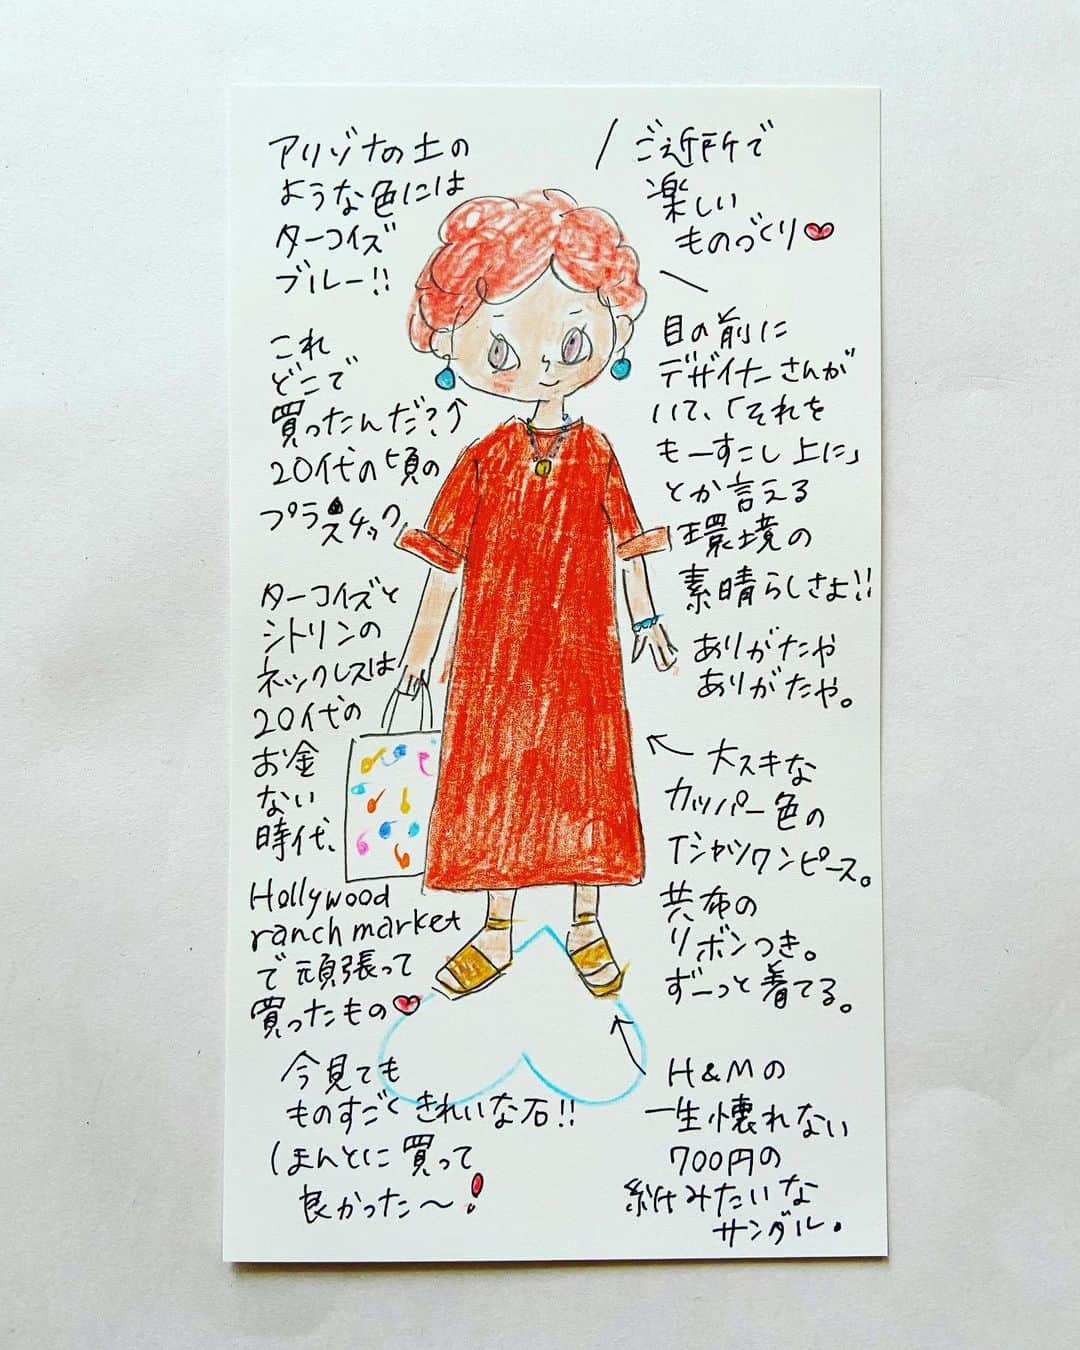 アリゾナの土の
ような色には
ターコイズ
ブルー!!
これ
どこで
買ったんだ?↑
20代の頃の
プラスチック
ターコイズと
シトリンの
ネックレスは
20代の
お金
ない
時代、
Hollywood
ranch market
で頑張って
買ったもの♥
今見ても
ものすごくきれいな石!!
ほんとに買って
良かった〜!
ご近所で
楽しい
ものづくり♥
目の前に
デザイナーさんが
いて、「それを
もーすこし上に」
とか言える
環境の
素晴らしさよ!!
ありがたや
ありがたや。
大スキな
カッパー色の
Tシャツワンピース。
共布の
リボンつき。
ずーっと着てる。
H&Mの
一生懐れない
700円の
紙みたいな
サンダル。